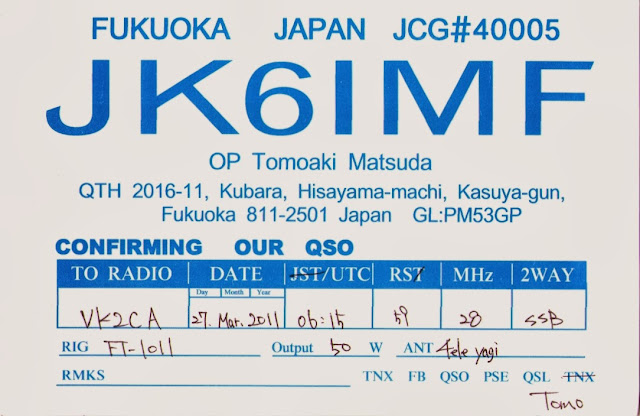 FUKUOKA JAPAN JCG#40005
JK6IMF
OP Tomoaki Matsuda
QTH 2016-11, Kubara, Hisayama-machi, Kasuya-gun,
Fukuoka 811-2501 Japan GL:PM53GP
CONFIRMING OUR QSO
TO RADIO DATE JST/UTC RST MHz 2WAY
Day Month Year
VK2CA 27. Mar. 2011 06:15 59 28 SSB
RIG FT-1011 Output 50 W ANT 4ele yagi
RMKS TNX FB QSO PSE QSL TNX
Tomo